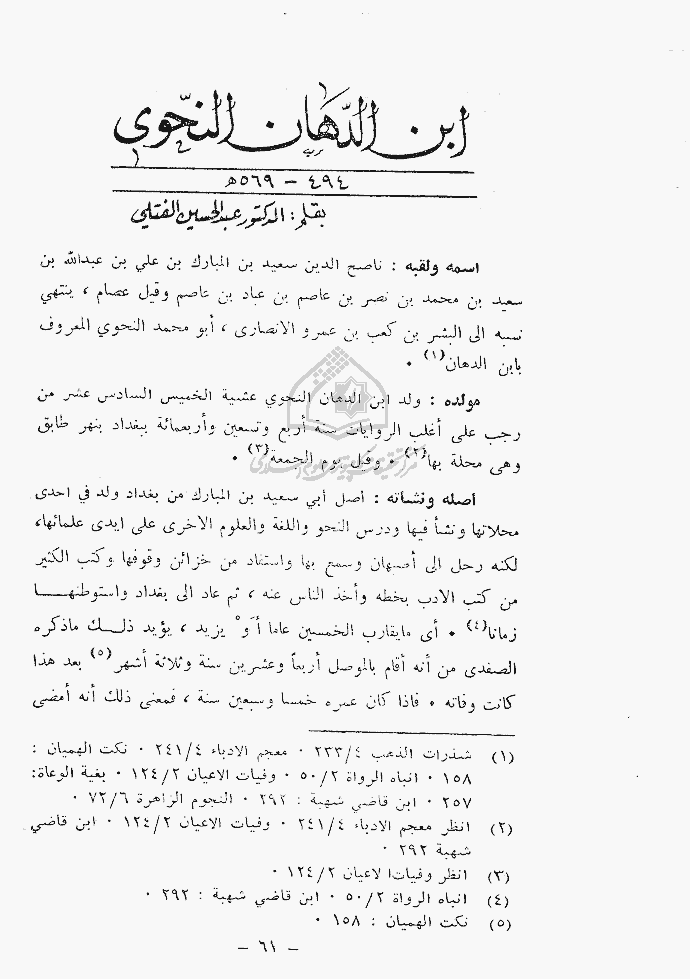 ابن الدهان النحوي
٤٩٤ - ٥٦٩هـ
بقلم : الدكتور عبدالحسين الفتلي
اسمه ولقبه : ناصح الدين سعيد بن المبارك بن علي بن عبدالله بن
سعيد بن محمد بن نصر بن عاصم بن عباد بن عاصم وقيل عصام ، ينتهي
نسبه الى البشر بن كعب بن عمرو الانصارى ، أبو محمد النحوي المعروف
بابن الدهان(١) ٠
مولده : ولد ابن الدهان النحوي عشية الخميس السادس عشر من
رجب على أغلب الروايات سنة أربع وتسعين وأربعمائة ببغداد بنهر طابق
وهى محلة بها(٢) ٠ وقيل يوم الجمعة(٣) ٠
أصله ونشأته : أصل أبي سعيد بن المبارك من بغداد ولد في احدى
محلاتها ونشأ فيها ودرس النحو واللغة والعلوم الاخرى على ايدى علمائها،
لكنه رحل الى أصبهان وسمع بها واستفاد من خزائن وقوفها وكتب الكثير
من كتب الادب بخطه وأخذ الناس عنه ، ثم عاد الى بغداد واستوطنهـــا
زمانا(٤) ٠ أى مايقارب الخمسين عاما أَوْ يزيد ، يؤيد ذلــك ماذكره
الصفدى من أنه أقام بالموصل أربعاً وعشرين سنة وثلاثة أشهر(٥) بعد هذا
كانت وفاته ٠ فاذا كان عمره خمسا وسبعين سنة ، فمعنى ذلك أنه أمضى
(١) شذرات الذهب ٢٣٣/٤ ٠ معجم الادباء ٢٤١/٤ ٠ نكت الهميان :
١٥٨ ٠ انباه الرواة ٥٠/٢ ٠ وفيات الاعيان ١٢٤/٢ ٠ بغية الوعاة:
٢٥٧ ٠ ابن قاضي شهبة : ٢٩٢ ٠ النجوم الزاهرة ٧٢/٦ ٠
(٢) انظر معجم الادباء ٢٤١/٤ ٠ وفيات الاعيان ١٢٤/٢ ٠ ابن قاضي
شهبة ٢٩٢ ٠
(٣) انظر وفياتا لاعيان ١٢٤/٢ ٠
(٤) انباه الرواة ٥٠/٢ ٠ ابن قاضي شهبة : ٢٩٢ ٠
(٥) نكت الهميان : ١٥٨ ٠
- ٦١ -